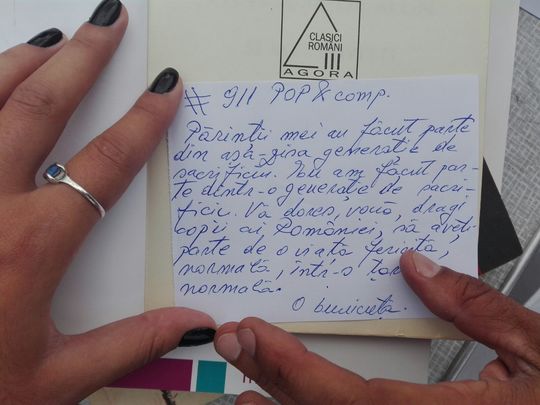 CLASICI
ROMÂNI
III
AGORA
# 911 POP & comp.
Părinții mei au făcut parte
din așă-zisa generație de
sacrificiu. Eu am făcut par-
te dintr-o generație de sacri-
ficiu. Vă doresc, vouă, dragi
copii ai României, să aveți
parte de o viață fericită,
normală, într-o
normală.
O bunicuță.